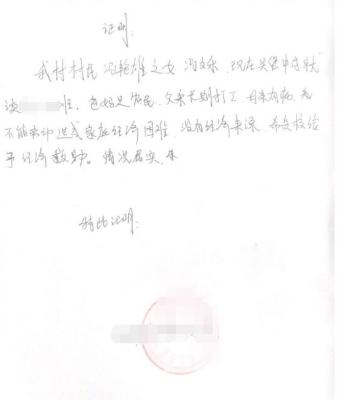 证明:
我村村民冯艳雄之女冯文乐,现在吴堡中学就
读 班,爸妈是农民,父亲长期打工,母亲有病,
不能劳动造成家庭经济困难,没有经济来源,希贵校给
予经济救助。情况属实
特此证明: